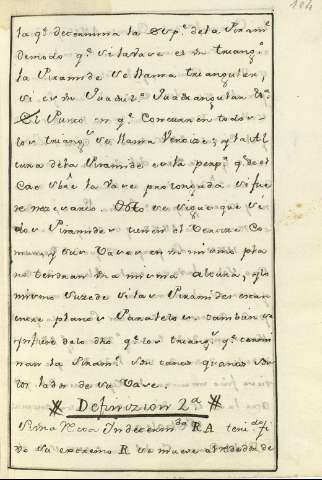 184
la q.e determina la Sup.e de la Piram.e
de modo q.e si la Vase es un triang.o
la Piramide se llama triangular,
si es un Quadril.o Quadrangular &.a
El Punto en q.e Concurren todos
los triang.s se llama Vertice; y la Al
tura de la Piramide es la perp.r q.e de el
Cae sobre la Vase prolongada si fue
de necesario. De esto se sigue que si
dos Piramides tienen el Vertice Co
mun, y sus Vases en un mismo pla
no tendran una misma altura, y lo
mismo sucede si las Piramides estan
entre planos Paralelos. tambien se
infiere de lo dho q.e los triang.s q.e termi
nan la Piram.e son tantos quantos son
los lados de su Vase.
# Definizion 2.a #
Si una Recta Indeterm.da R A teni.do fi
jo su extremo R se mueve alrededor de